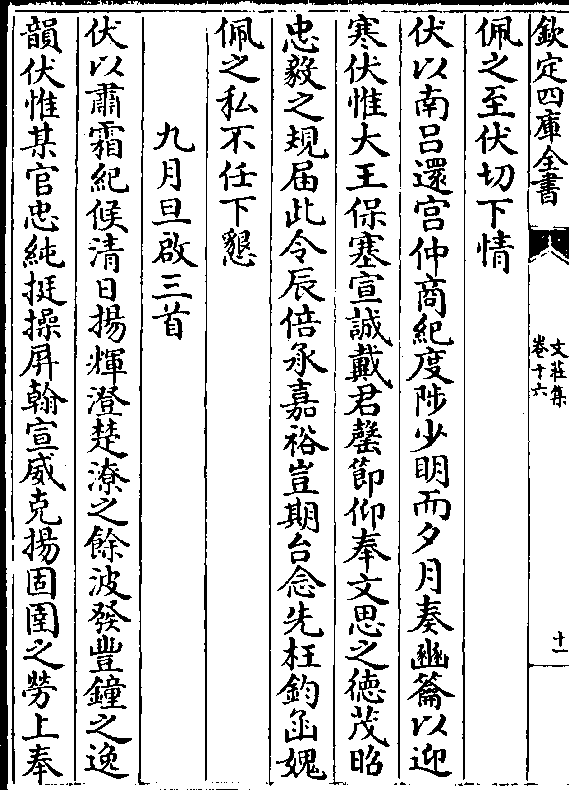 欽定四庫全書
文莊集
卷十六
十一
佩之至伏切下情
伏以南呂還宫仲商紀度陟少眀而夕月奏豳籥以迎
寒伏惟大王保塞宣誠戴君罄節仰奉文思之德茂昭
忠毅之規届此令辰倍承嘉裕豈期台念先枉鈞函媿
佩之私不任下懇
九月旦啟三首
伏以肅霜紀候清日揚輝澄楚潦之餘波發豐鐘之逸
韻伏惟某官忠純挺操屏翰宣威克揚固圉之勞上奉